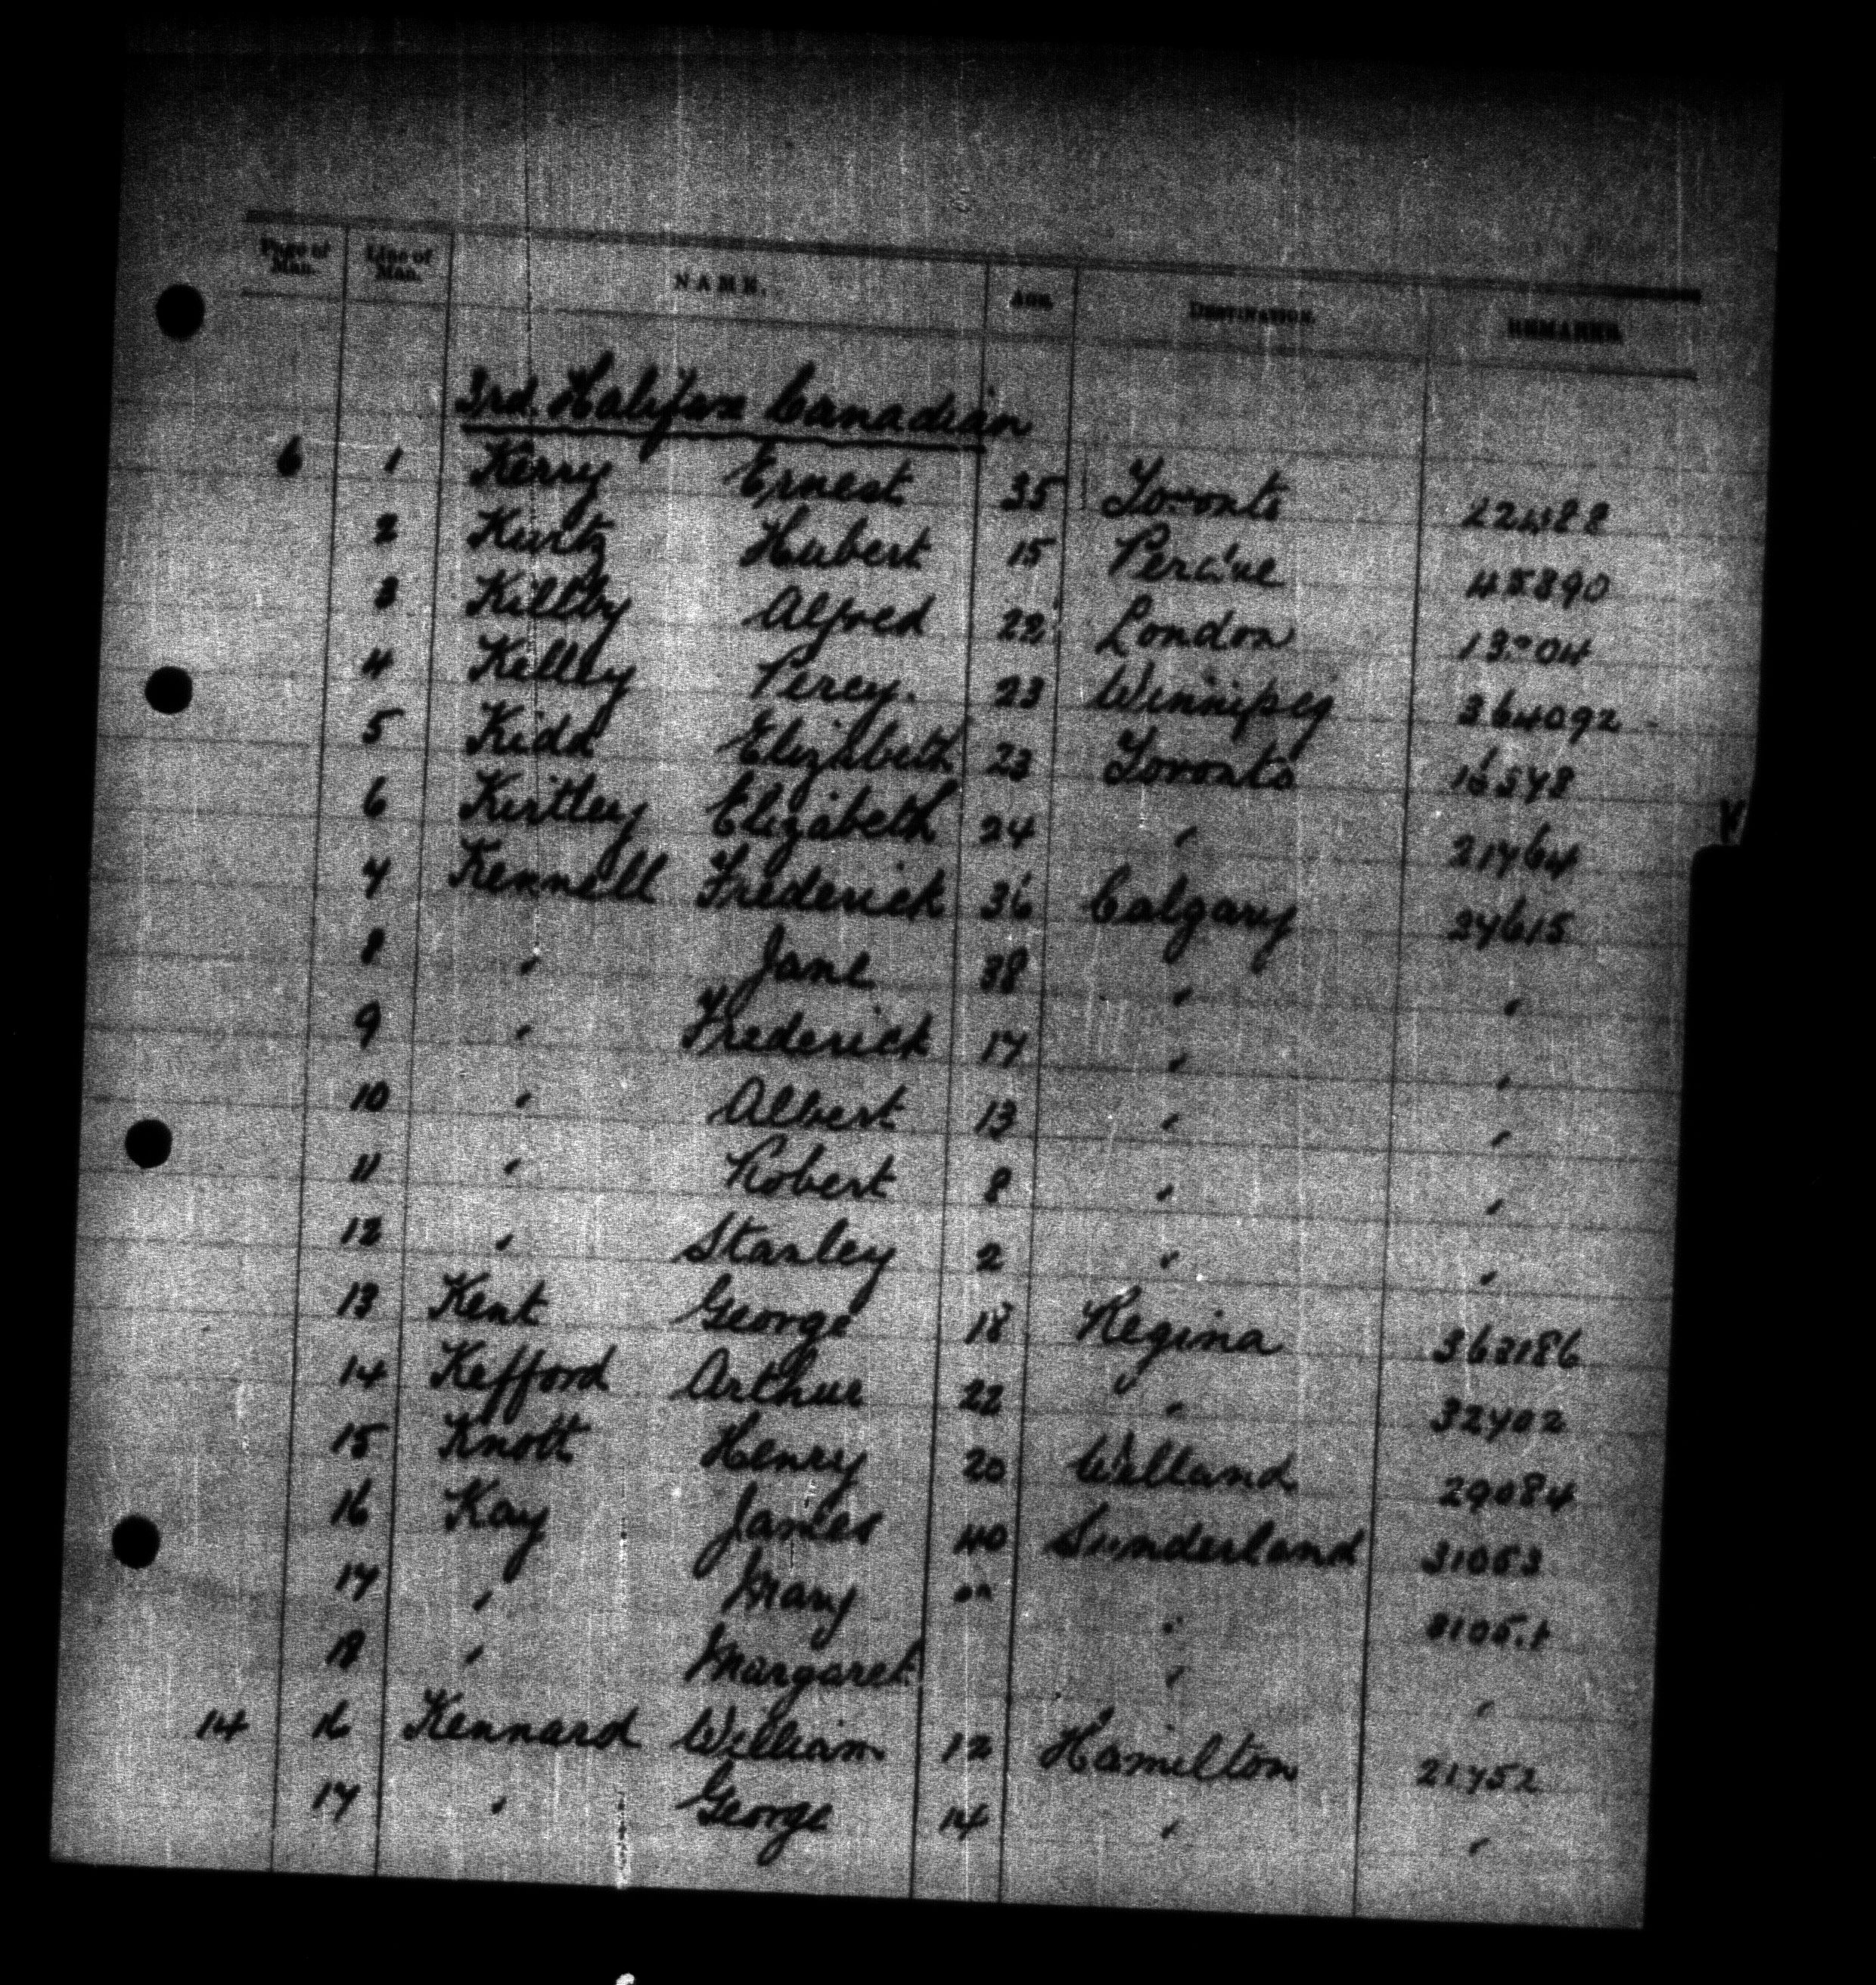 Page of Man. Line of Man. NAME. AGE. DESTINATION. REMARKS
3rd. Halifax Canadian
6 1 Kerry Ernest 35 Toronto
2 Kurtz Hubert 15 45890
3 Killby Alfred 22 London
4 Kelley Percy. 23 Winnipeg 364092
5 Kidd Elizabeth 23 Toronto 16548
6 Kirtley Elizabeth 24 " 21764
7 Kennell Frederick 36 Calgary 27615
8 " Jane 38 " "
9 " Frederick 17 " "
10 " Albert 13 " "
11 " Robert 8 " "
12 " Stanley 2 " "
13 Kent George 18 Regina 363186
14 Kefford Arthur 22 " 32702
15 Knott Henry 20 Welland 29084
16 Kay James 40 Sunderland 31053
17 " Mary "
18 " Margaret " "
14 16 Kennard William 12 Hamilton 21752
17 " George 14 " "